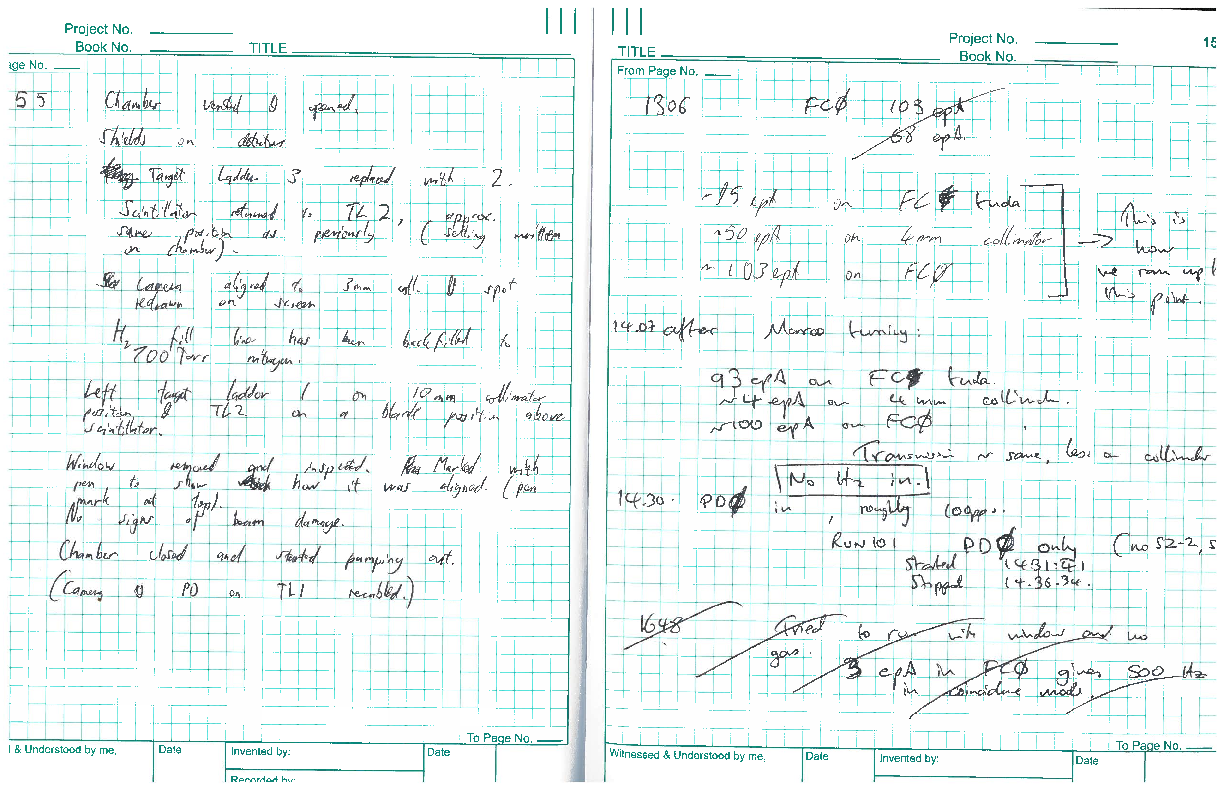 Project No.
Book No.
TITLE
age No.
55 Chamber vented & opened.
Shields on detectors
Target Ladder 3 replaced with 2.
Scintillator returned to TL2, approx.
same position as previously (setting written
on chamber).
Camera aligned to 3mm coll. & spot
redrawn on screen
H2 fill line has been backfilled to
700 Torr nitrogen.
Left target ladder 1 on 10mm collimator
position & TL2 on a blank position above
scintillator.
Window removed and inspected. Marked with
pen to show how it was aligned. (pen
mark at top).
No signs of beam damage.
Chamber closed and started pumping out.
(Camera & PD on TL1 recabled.)
To Page No.
d & Understood by me,
Date
Invented by:
Date
Recorded by:
Project No.
Book No.
15
TITLE
From Page No.
1306 FCØ 103 epA
68 epA.
~95 epA on FC tuda
~50 epA on 4mm collimator
~103 epA on FCØ
This is
how
we ran up t
this point.
14.07 after Marco tuning:
93 epA on FC tuda.
~4 epA on 4mm collimator.
~100 epA on FCØ
Transmission ~ same, less on collimator
No H2 in.
14.30. PDØ in, roughly 100pps.
RUN 101 PDØ only (no S2-2, S
Started 14:31:41
Stopped 14.36.34.
1648 Tried to run with window and no
gas.
3 epA in FCØ gives 500 Hz
in coincidence mode.
To Page No.
Witnessed & Understood by me,
Date
Invented by:
Date